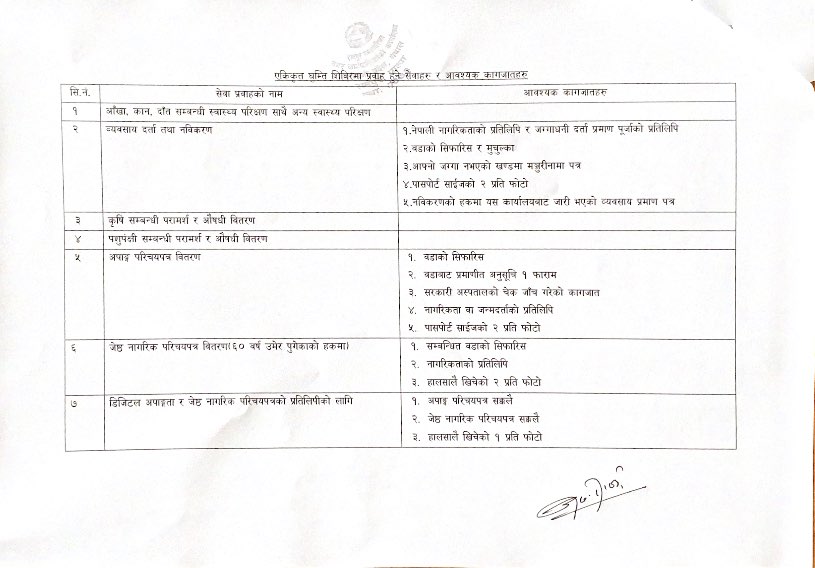 एकिकृत घुम्ति शिविरमा प्रवाह हुने सेवाहरु र आवश्यक कागजातहरु
सि.नं. सेवा प्रवाहको नाम आवश्यक कागजातहरु
१ आँखा, कान, दाँत सम्बन्धी स्वास्थ्य परिक्षण साथै अन्य स्वास्थ्य परिक्षण
२ व्यवसाय दर्ता तथा नविकरण १.नेपाली नागरिकताको प्रतिलिपि र जग्गाधनी दर्ता प्रमाण पूर्जाको प्रतिलिपि
२.वडाको सिफारिस र मुचुल्का
३.आफ्नो जग्गा नभएको खण्डमा मञ्जुरीनामा पत्र
४.पासपोर्ट साईजको २ प्रति फोटो
५.नविकरणको हकमा यस कार्यालयबाट जारी भएको व्यवसाय प्रमाण पत्र
३ कृषि सम्बन्धी परामर्श र औषधी वितरण
४ पशुपंक्षी सम्बन्धी परामर्श र औषधी वितरण
५ अपाङ्ग परिचयपत्र वितरण १. वडाको सिफारिस
२. वडाबाट प्रमाणीत अनुसूचि १ फाराम
३. सरकारी अस्पतालको चेक जाँच गरेको कागजात
४. नागरिकता वा जन्मदर्ताको प्रतिलिपि
५. पासपोर्ट साईजको २ प्रति फोटो
६ जेष्ठ नागरिक परिचयपत्र वितरण(६० वर्ष उमेर पुगेकाको हकमा) १. सम्बन्धित वडाको सिफारिस
२. नागरिकताको प्रतिलिपि
३. हालसालै खिचेको २ प्रति फोटो
७ डिजिटल अपाङ्गता र जेष्ठ नागरिक परिचयपत्रको प्रतिलिपीको लागि १. अपाङ्ग परिचयपत्र सक्कलै
२. जेष्ठ नागरिक परिचयपत्र सक्कलै
३. हालसालै खिचेको १ प्रति फोटो